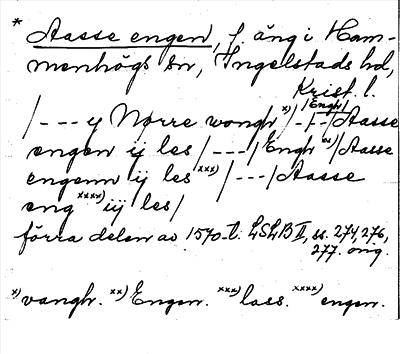 * Aasse engen, f. äng i Ham-
menhögs sn, Ingelstads hd,
Krist. l.
/--- y Nørre wongh x)/-/Engh/-/Aasse
engen ij les /---/ Engh xx)/Aasse
engenn ij les xxx)/---/Aasse
eng xxxx) iij les/
förra delen av 1570-t. LSLB II, ss. 274, 276,
277. orig.
x) vangh. xx) Engen. xxx) lass. xxxx) engen.